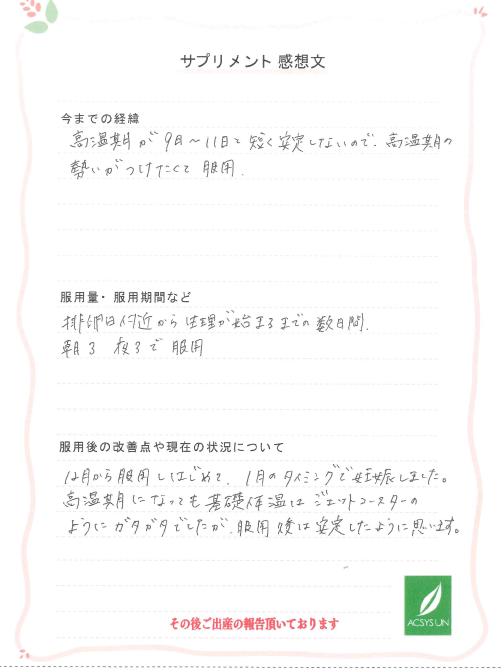 サプリメント 感想文
今までの経緯
高温期が9日～11日と短く安定しないので、高温期の
勢いがつけたくて服用.
服用量・服用期間など
排卵日付近から生理が始まるまでの数日間.
朝3 夜3で服用
服用後の改善点や現在の状況について
12月から服用しはじめて、1月のタイミングで妊娠しました。
高温期になっても基礎体温はジェットコースターの
ようにガタガタでしたが、服用後は安定したように思います。
その後ご出産の報告頂いております
ACSYS UN